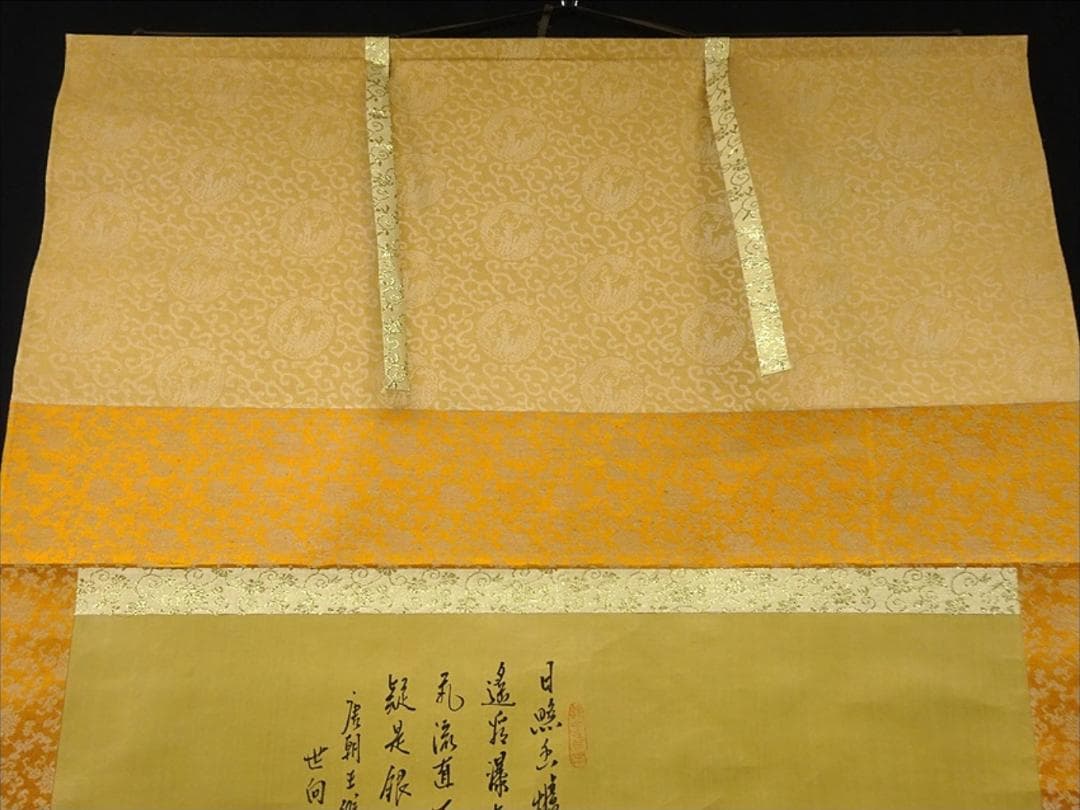 日照香爐
遙看瀑
飛流直
疑是銀
唐朝王
世向